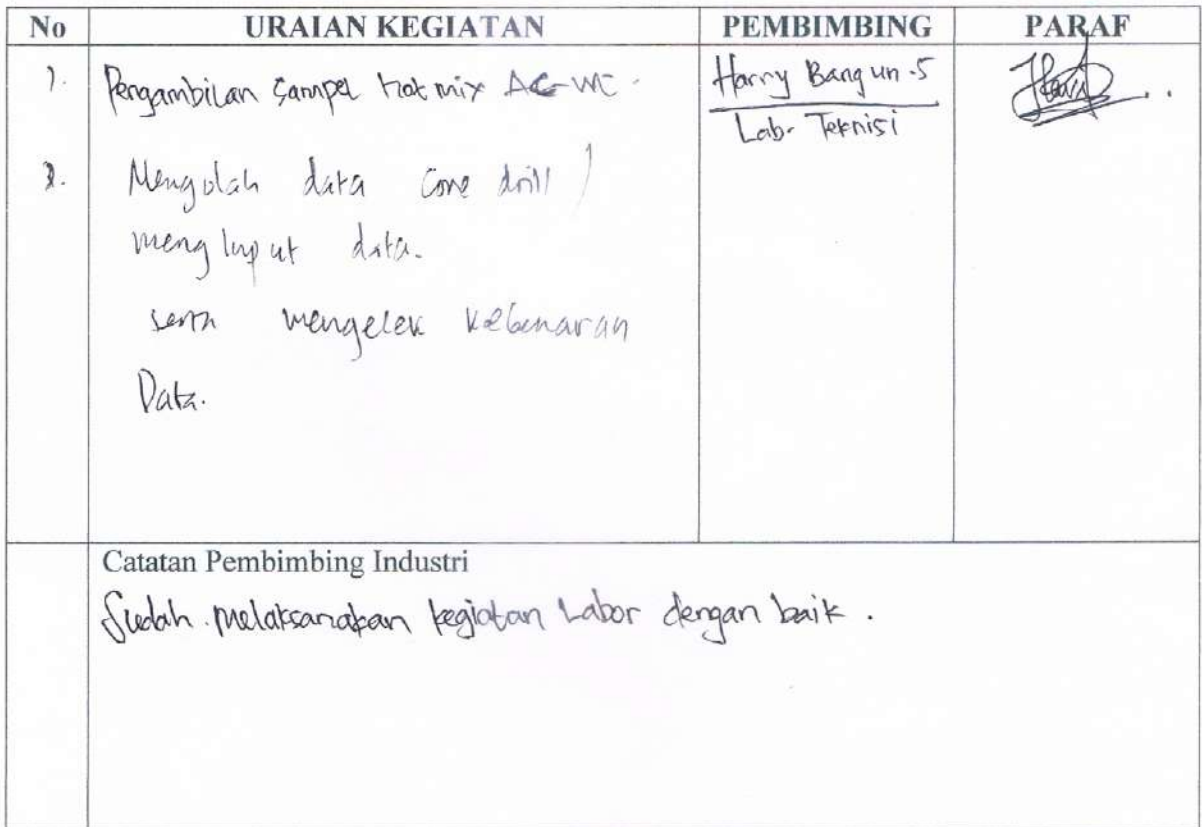 No URAIAN KEGIATAN PEMBIMBING PARAF
1. Pengambilan Sampel Hotmix AC-WC. Harry Bangun.S
Lab. Teknisi
2. Mengolah data Core drill /
mengInput data.
serta mengecek kebenaran
Data.
Catatan Pembimbing Industri
Sudah melaksanakan kegiatan Labor dengan baik.